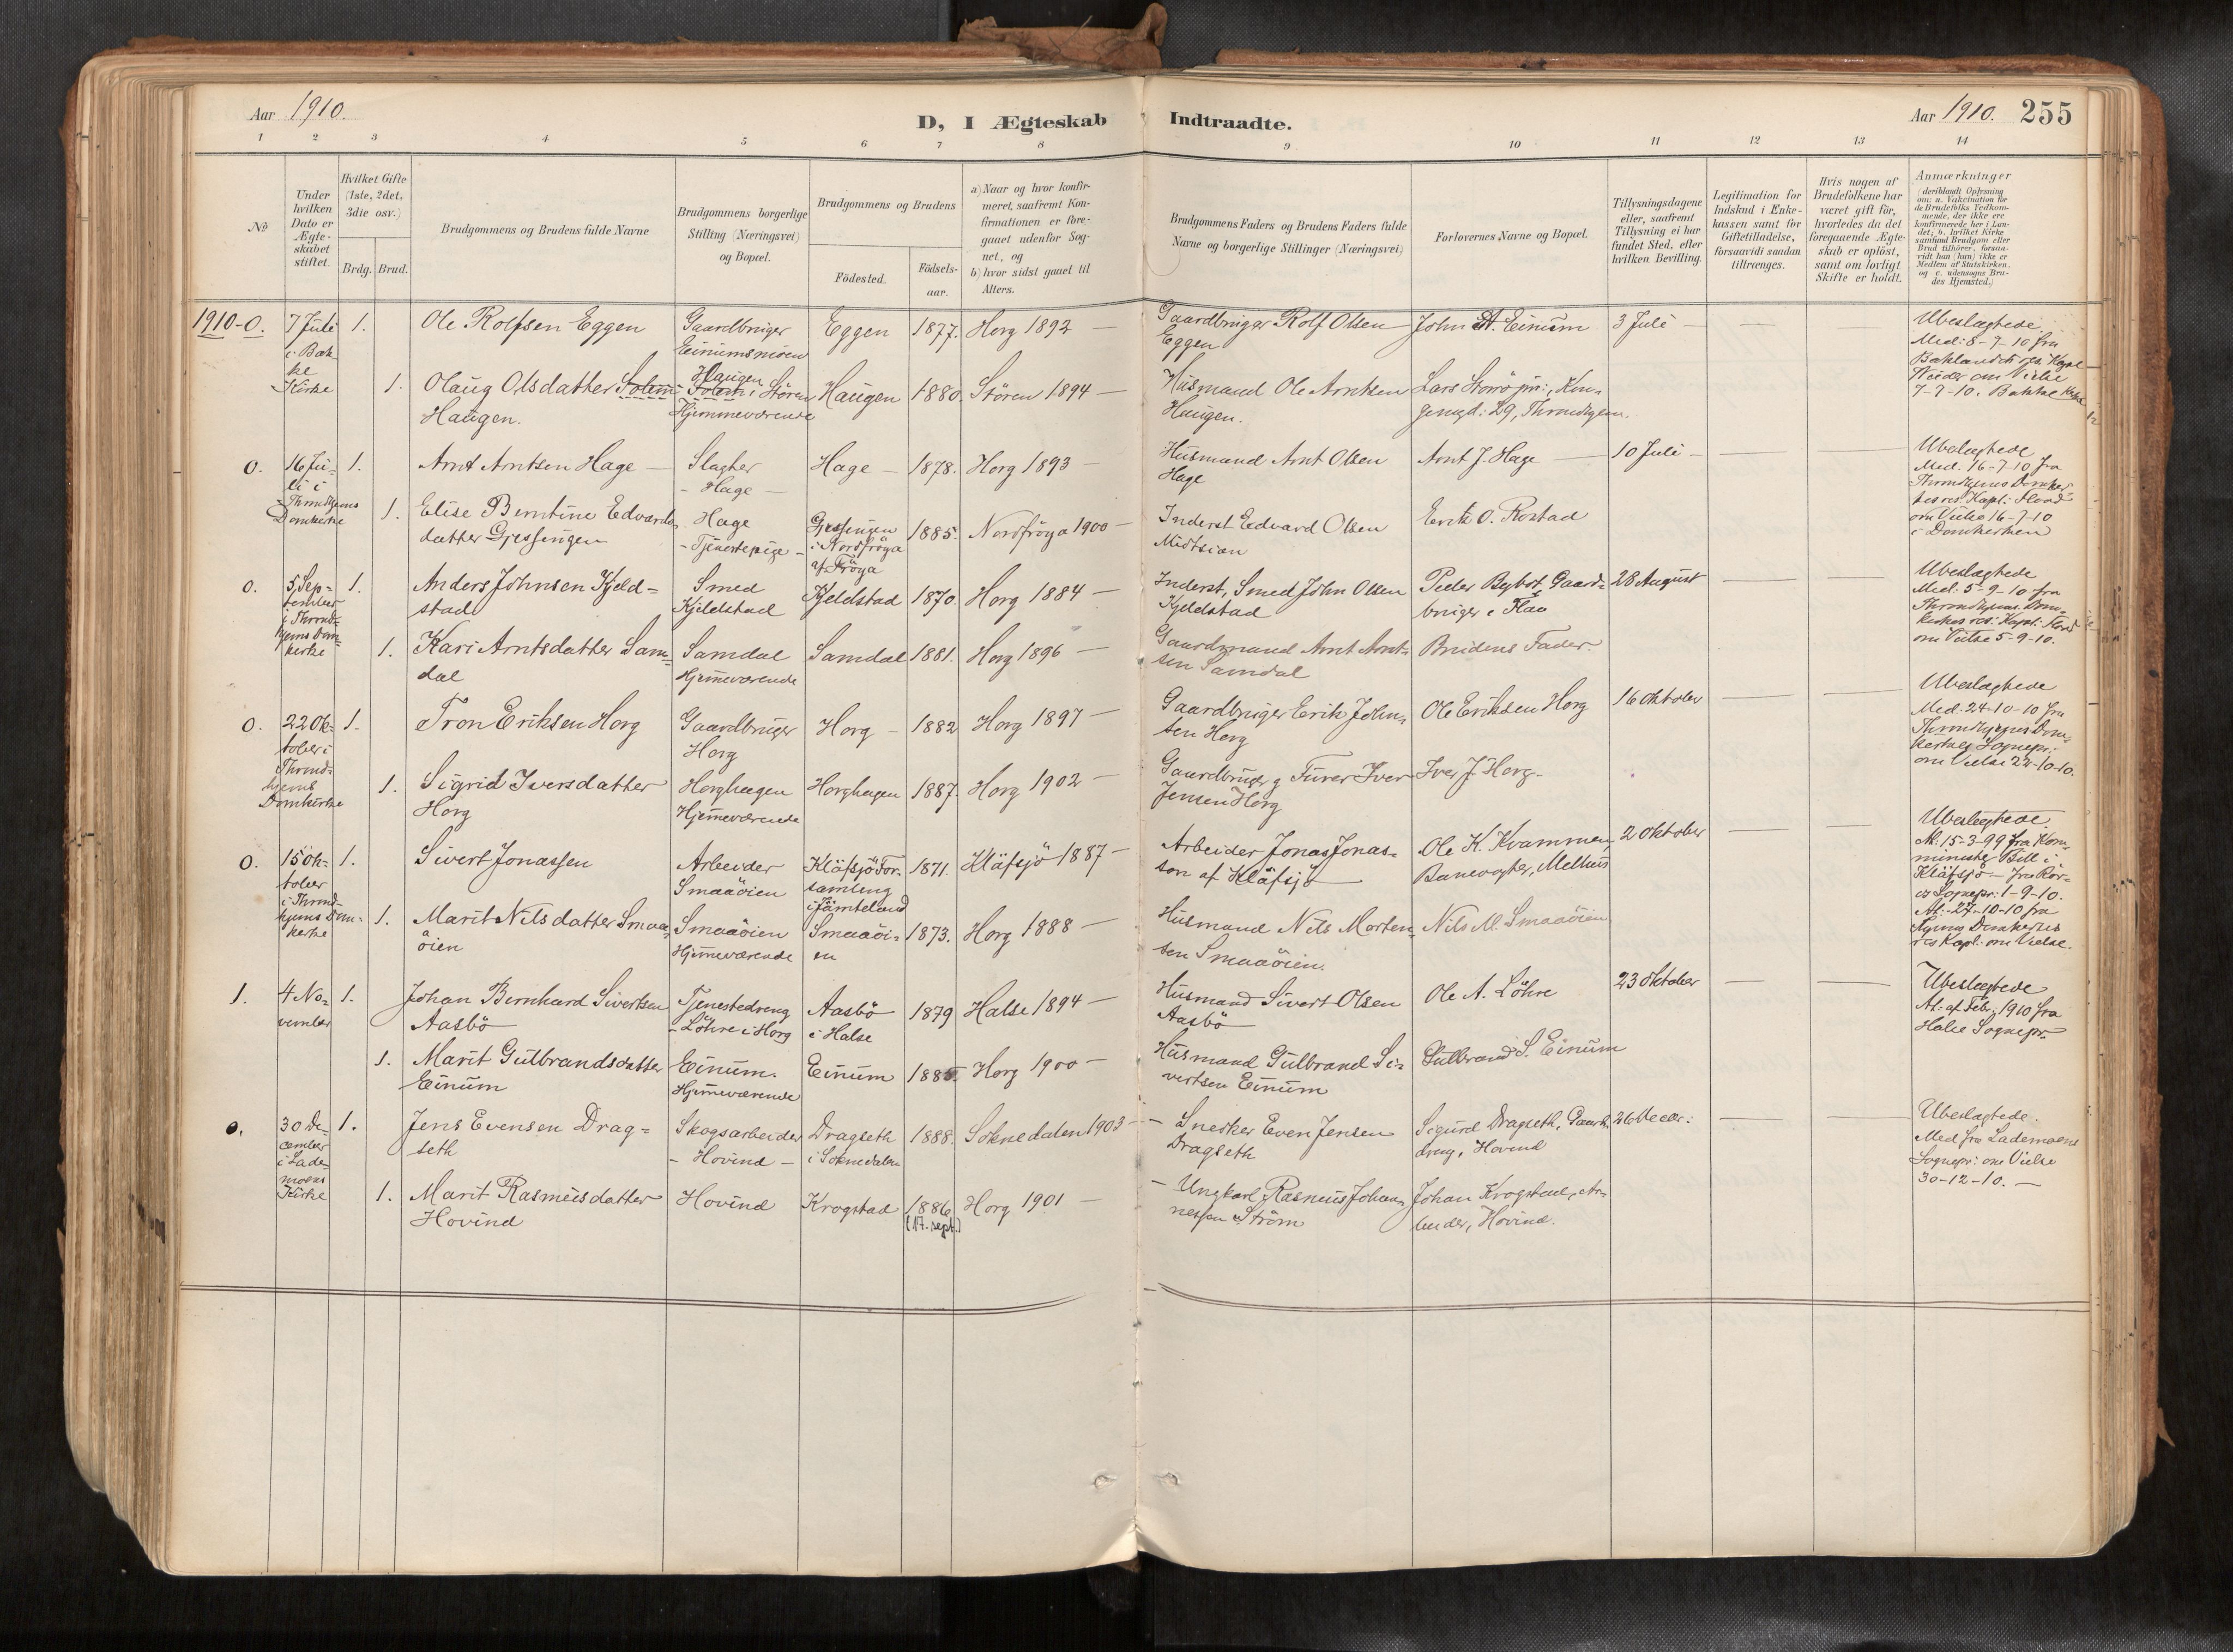 Aar 1910.
D, I Ægteskab
Indtraadte.
Aar 1910.
255
1 2 3 4 5 6 7 8 9 10 11 12 13 14
No
Under
hvilken
Dato er
Ægte-
skabet
stiftet.
Hvilket Gifte
(1ste, 2det,
3die osv.)
Brdg. Brud.
Brudgommens og Brudens fulde Navne
Brudgommens borgerlige
Stilling (Næringsvei)
og Bopæl.
Brudgommens og Brudens
Födested.
Födsels-
aar.
a) Naar og hvor konfir-
meret, saafremt Kon-
firmationen er fore-
gaaet udenfor Sog-
net, og
b) hvor sidst gaaet til
Alters.
Brudgommens Faders og Brudens Faders fulde
Navne og borgerlige Stillinger (Næringsvei)
Forlovernes Navne og Bopæl.
Tillysningsdagene
eller, saafremt
Tillysning ei har
fundet Sted, efter
hvilken Bevilling.
Legitimation for
Indskud i Enke-
kassen samt for
Giftetilladelse,
forsaavidt saadan
tiltrænges.
Hvis nogen af
Brudefolkene har
været gift för,
hvorledes da det
foregaaende Ægte-
skab er oplöst,
samt om lovligt
Skifte er holdt.
Anmærkninger
(deriblandt Oplysning
om: a. Vakcination for
de Brudefolks Vedkom-
mende, der ikke ere
konfirmerede her i Lan-
det; b. hvilket Kirke
samfund Brudgom eller
Brud tilhörer, forsaa-
vidt han (hun) ikke er
Medlem af Statskirken,
og c. udensogns Bru-
des Hjemsted.)
1910-0.
7 Juli
i Bak-
ke
Kirke
1.
Ole Rolfsen Eggen
Gaardbruger
Einumsmoen
Eggen
1877.
Horg 1892 —
Gaardbruger Rolf Olsen
Eggen
John A. Einum
3 Juli —
Ubeslægtede.
Med: 8-7-10 fra
7-7-10. Bakke Kirke
1.
Olaug Olsdatter Solem
Haugen.
Haugen
Solem i Stören
Hjemmeværende
Haugen
1880.
Stören 1894 —
Husmand Ole Arntsen
Haugen.
Lars Storrö jnr:, Kon-
gensgd: 29, Throndhjem.
0.
16 Ju-
li i
Throndhjems
Domkirke
1.
Arnt Arntsen Hage —
Slagter
- Hage —
Hage —
1878.
Horg 1893 —
Husmand Arnt Olsen
Hage
Arnt J. Hage
10 Juli —
Ubeslægtede
Med. 16-7-10 fra
Throndhjems Domkir-
kes res. Kapl:
om Vielse 16-7-10
i Domkirken
1.
Elise Berntine Edvards-
datter Gjessingen
Hage
- Tjenestepige -
Gjessingen
i Nordfröya
af Fröya
1885.
Nordfröya 1900 —
Inderst Edvard Olsen
Midtsian
Erik O. Rostad
0.
5 Sep-
tember
i Thrond-
hjems Dom-
kirke
1.
Anders Johnsen Kjeld-
stad
Smed
Kjeldstad
Kjeldstad
1870.
Horg 1884 —
Inderst, Smed John Olsen
Kjeldstad
Peder Bybot, Gaard-
bruger i Flaa
28 August
Ubeslægtede
Med: 5-9-10 fra
Throndhjems Dom-
kirkes res: Kapl:
om Vielse 5-9-10.
1.
Kari Arntsdatter Sam-
dal
Samdal
Hjemmeværende
Samdal
1881.
Horg 1896 —
Gaardmand Arnt Arnt-
sen Samdal
Brudens Fader.
0.
22 Ok-
tober i
Thrond-
hjems
Domkirke
1.
Tron Eriksen Horg
Gaardbruger
Horg
Horg —
1882
Horg 1897 —
Gaardbruger Erik John-
sen Horg
Ole Eriksen Horg
16 Oktober
Ubeslægtede
Med. 24-10-10 fra
Throndhjems Dom-
kirkes Sognepr:
om Vielse 22-10-10.
1.
Sigrid Iversdatter
Horg
Horghaugen
Hjemmeværende
Horghaugen
1887.
Horg 1902 —
Gaardbruger g Furer Iver
Jensen Horg
Iver J. Horg.
0.
15 Ok-
tober
i Thrond-
hjems Dom-
kirke
1.
Sivert Jonassen
Arbeider
Smaaöien
Kläfsjö For-
samling
i Jämteland
1871.
Kläfsjö 1887 —
Arbeider Jonas Jonas-
son af Kläfsjö
Ole K. Kvammen,
Banevogter, Melhus
2 Oktober
Ubeslægtede.
At: 15-3-99 fra Kom-
minister Bill i
Kläfsjö — fra Rör-
os Sognepr: 1-9-10.
At: 27-10-10 fra
Thjems Domkirkes
res Kapl: om Vielse.
1.
Marit Nilsdatter Smaa-
öien
Smaaöien
Hjemmeværende
Smaaöi-
en
1873.
Horg 1888 —
Husmand Nils Morten-
sen Smaaöien.
Nils M. Smaaöien
1.
4 No-
vember
1.
Johan Bernhard Sivertsen
Aasbö
Tjenestedreng
- Löhre i Horg
Aasbö
i Halse
1879
Halse 1894 —
Husmand Sivert Olsen
Aasbö
Ole A. Löhre
23 Oktober
Ubeslægtede
At: af Febr. 1910 fra
Halse Sognepr:
1.
Marit Gulbrandsdatter
Einum
Einum.
Hjemmeværende
Einum
1885.
Horg 1900 —
Husmand Gulbrand Si-
vertsen Einum
Gulbrand S. Einum
0.
30 De-
cember
i Lade-
moens
Kirke
1.
Jens Evensen Drag-
seth
Skogsarbeider
- Hovind —
Dragseth
i Soknedalen
1888.
Soknedalen 1903 —
- Snedker Even Jensen
Dragseth
Sigurd Dragseth, Gaards-
dreng, Hovind
26 Decbr:
Ubeslægtede.
Med fra Lademoens
Sognepr: om Vielse
30-12-10. —
1.
Marit Rasmusdatter
Hovind
Hovind
Krogstad
1886
(17. sept.)
Horg 1901 —
- Ungkarl Rasmus Johan-
nessen Ström
Johan Krogstad, Ar-
beider, Hovind.